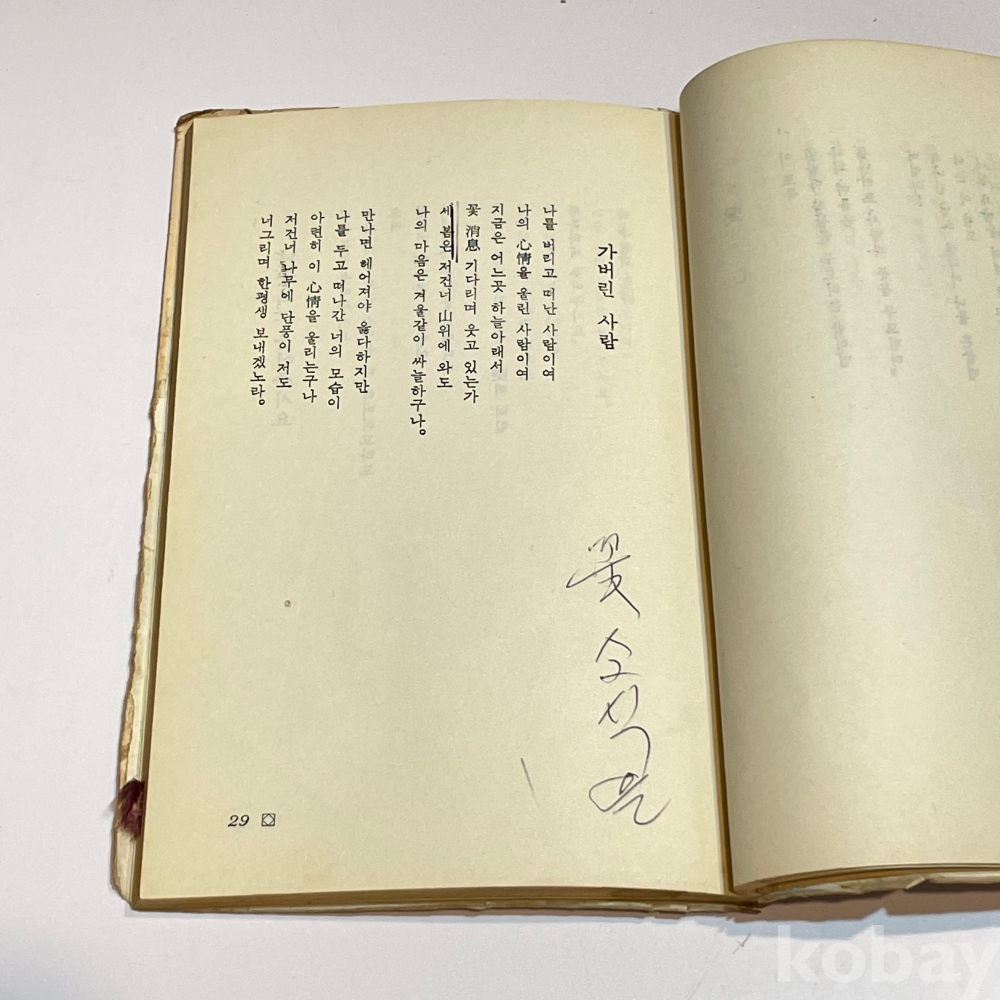 가버린 사람
나를 버리고 떠난 사람이여
나의 心情을 울린 사람이여
지금은 어느곳 하늘아래서
꽃 消息 기다리며 웃고 있는가
세 봄은 저건너 山위에 와도
나의 마음은 겨울같이 싸늘하구나。
만나면 헤어져야 옳다하지만
나를 두고 떠나간 너의 모습이
아련히 이 心情을 울리는구나
저건너 나무에 단풍이 저도
너그리며 한평생 보내겠노라。
꽃 소식은
29
kobay